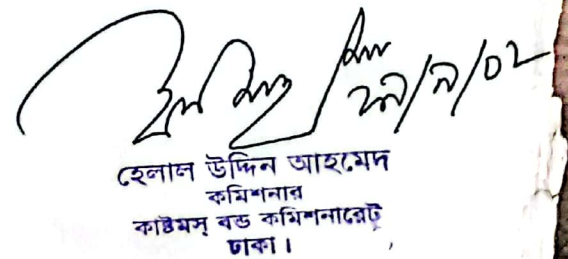 ২৯/৯/০২
হেলাল উদ্দিন আহমেদ
কমিশনার
কাষ্টমস্ বন্ড কমিশনারেট
ঢাকা।